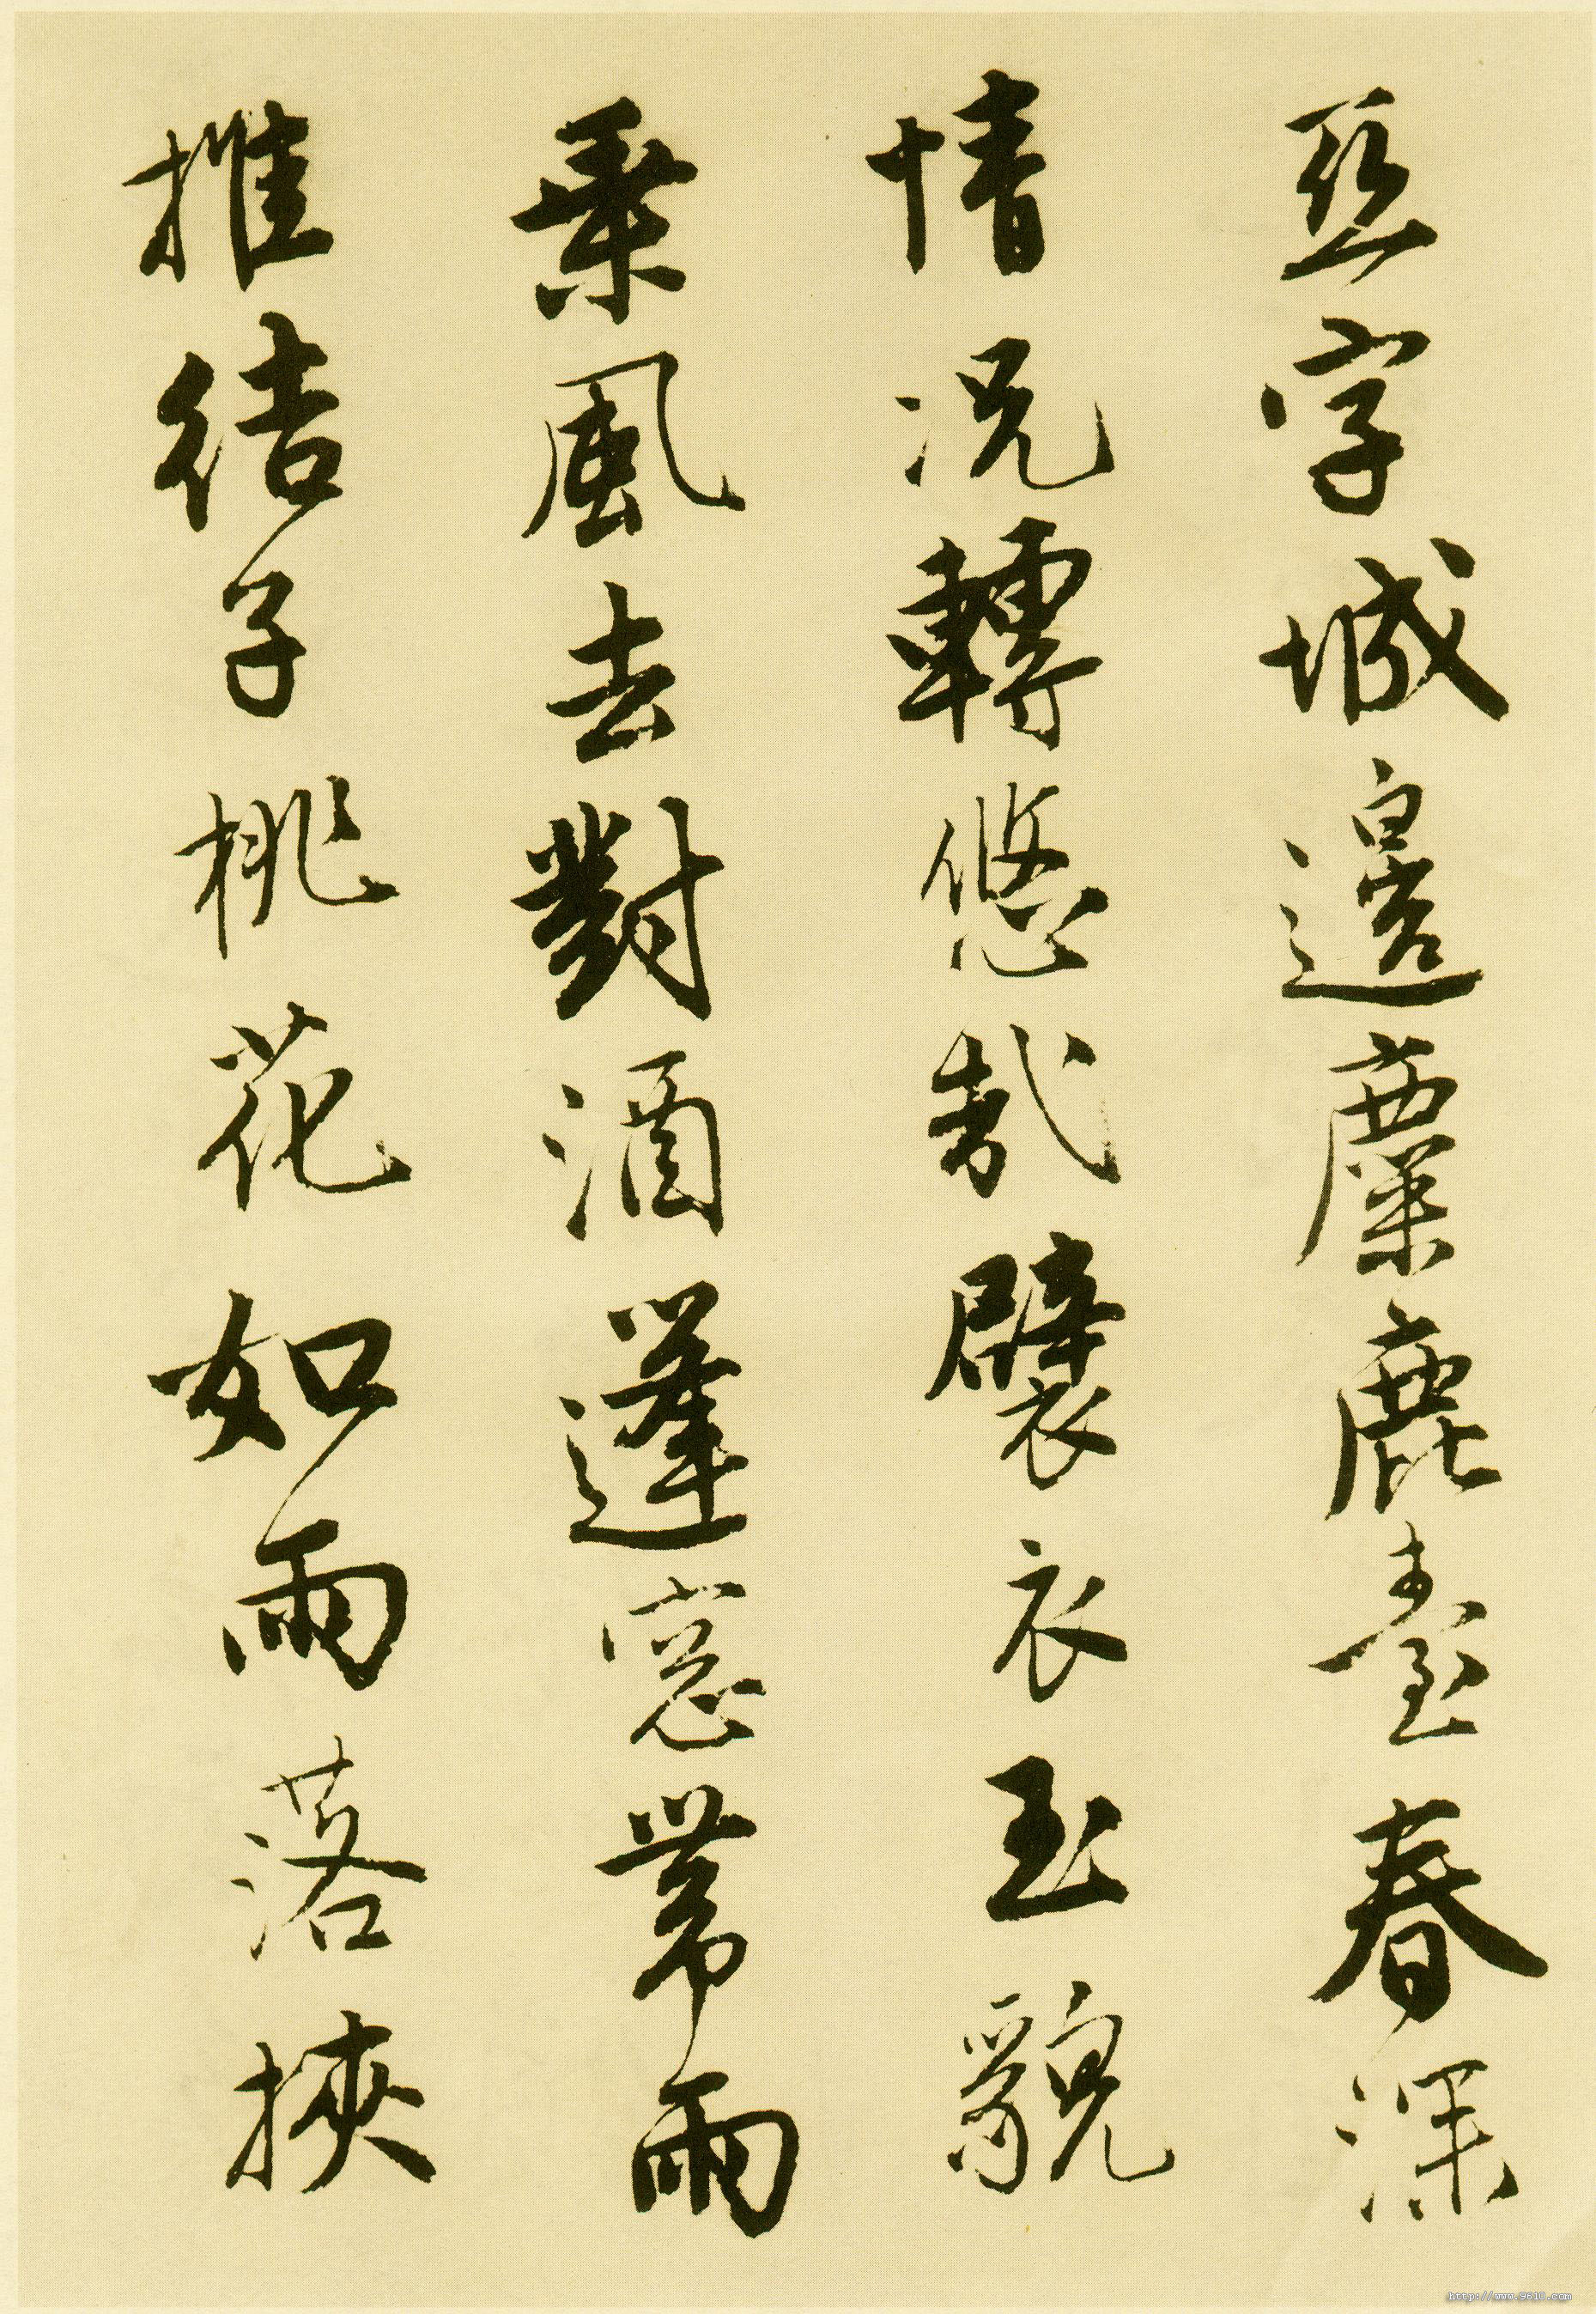 亞字城邊麋鹿臺春深
情況轉悠哉襞衣玉貌
乘風去對酒蓬窓帶雨
推結子桃花如雨落挾
http://www.9610.com